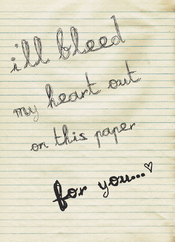 ill bleed
my heart out
on this paper
for you...♡